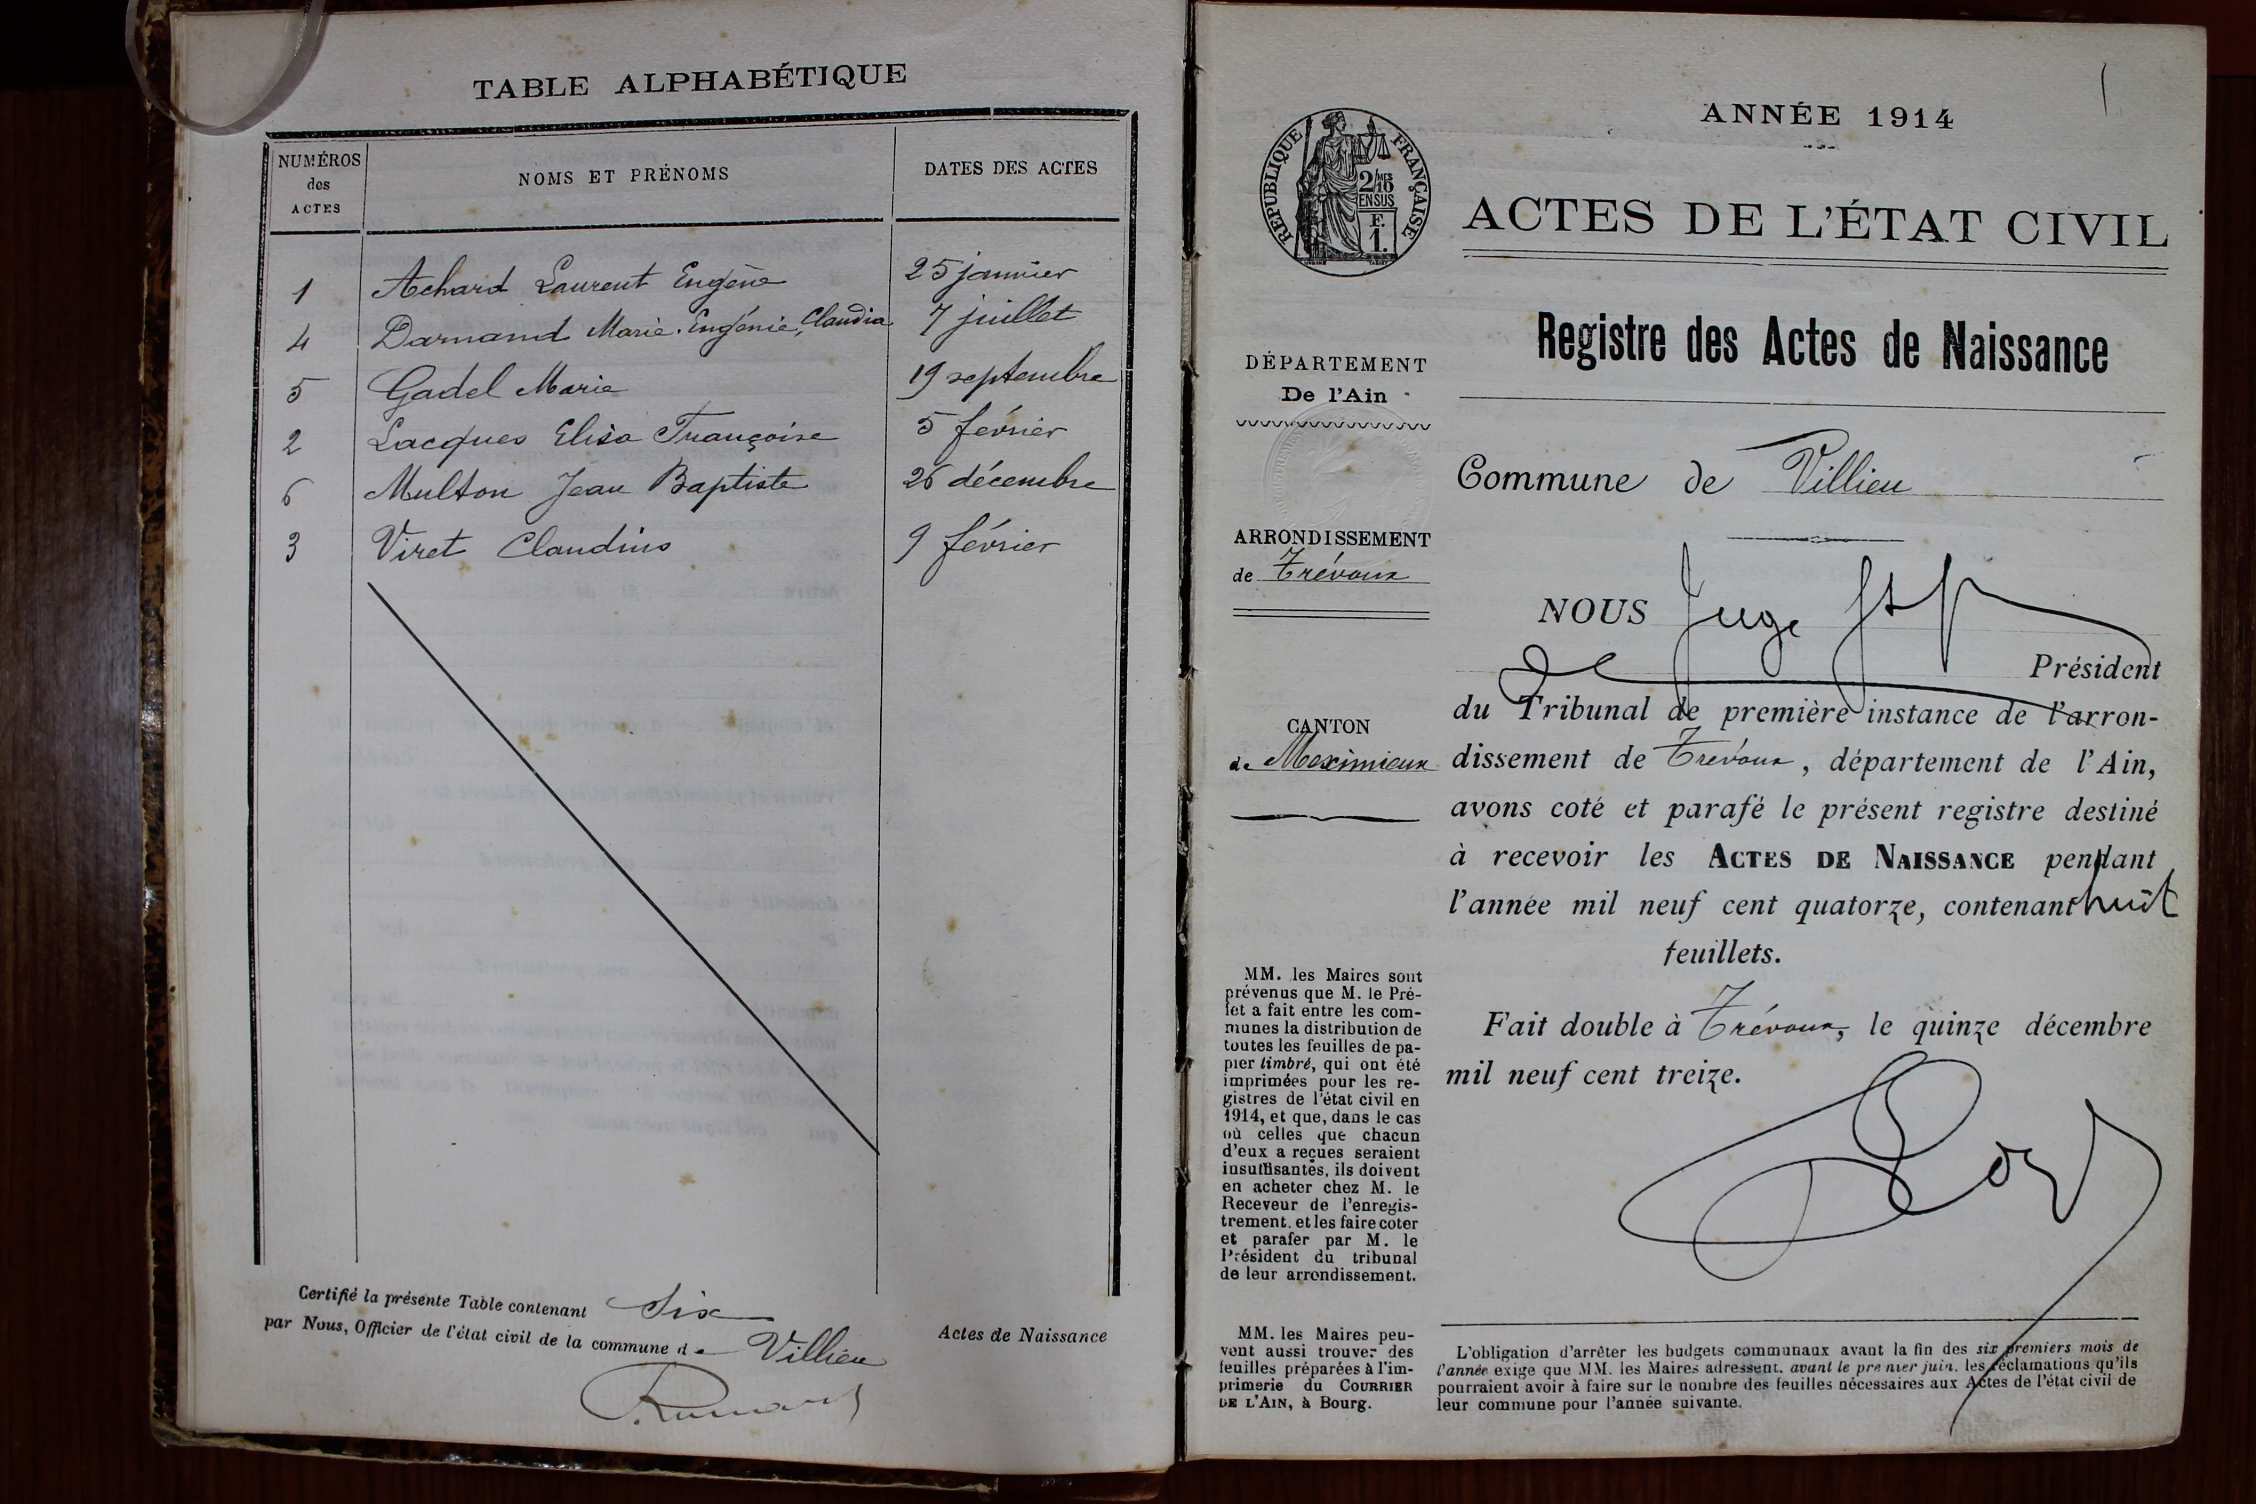 TABLE ALPHABÉTIQUE
NUMÉROS des ACTES
NOMS ET PRÉNOMS
DATES DES ACTES
1 Achard Laurent Eugène 25 janvier
4 Darnand Marie Eugénie, Claudia 7 juillet
5 Gadel Marie 19 septembre
2 Lacques Elisa Françoise 5 février
6 Multon Jean Baptiste 26 décembre
3 Viret Claudius 9 février
Certifié la présente Table contenant Six
Actes de Naissance
par Nous, Officier de l'état civil de la commune de Villieu
1
ANNÉE 1914
RÉPUBLIQUE FRANÇAISE
2/10MES
EN SUS
F.
1.
ACTES DE L'ÉTAT CIVIL
Registre des Actes de Naissance
DÉPARTEMENT
De l'Ain
Commune de Villieu
ARRONDISSEMENT
de Trévoux
CANTON
de Meximieux
NOUS Juge
Président
du Tribunal de première instance de l'arron-
dissement de Trévoux, département de l'Ain,
avons coté et parafé le présent registre destiné
à recevoir les ACTES DE NAISSANCE pendant
l'année mil neuf cent quatorze, contenant huit
feuillets.
Fait double à Trévoux, le quinze décembre
mil neuf cent treize.
MM. les Maires sont
prévenus que M. le Pré-
fet a fait entre les com-
munes la distribution de
toutes les feuilles de pa-
pier timbré, qui ont été
imprimées pour les re-
gistres de l'état civil en
1914, et que, dans le cas
où celles que chacun
d'eux a reçues seraient
insuffisantes, ils doivent
en acheter chez M. le
Receveur de l'enregis-
trement, et les faire coter
et parafer par M. le
Président du tribunal
de leur arrondissement.
MM. les Maires peu-
vent aussi trouver des
feuilles préparées à l'im-
primerie du COURRIER
DE L'AIN, à Bourg.
L'obligation d'arrêter les budgets communaux avant la fin des six premiers mois de
l'année exige que MM. les Maires adressent, avant le premier juin, les réclamations qu'ils
pourraient avoir à faire sur le nombre des feuilles nécessaires aux Actes de l'état civil de
leur commune pour l'année suivante.